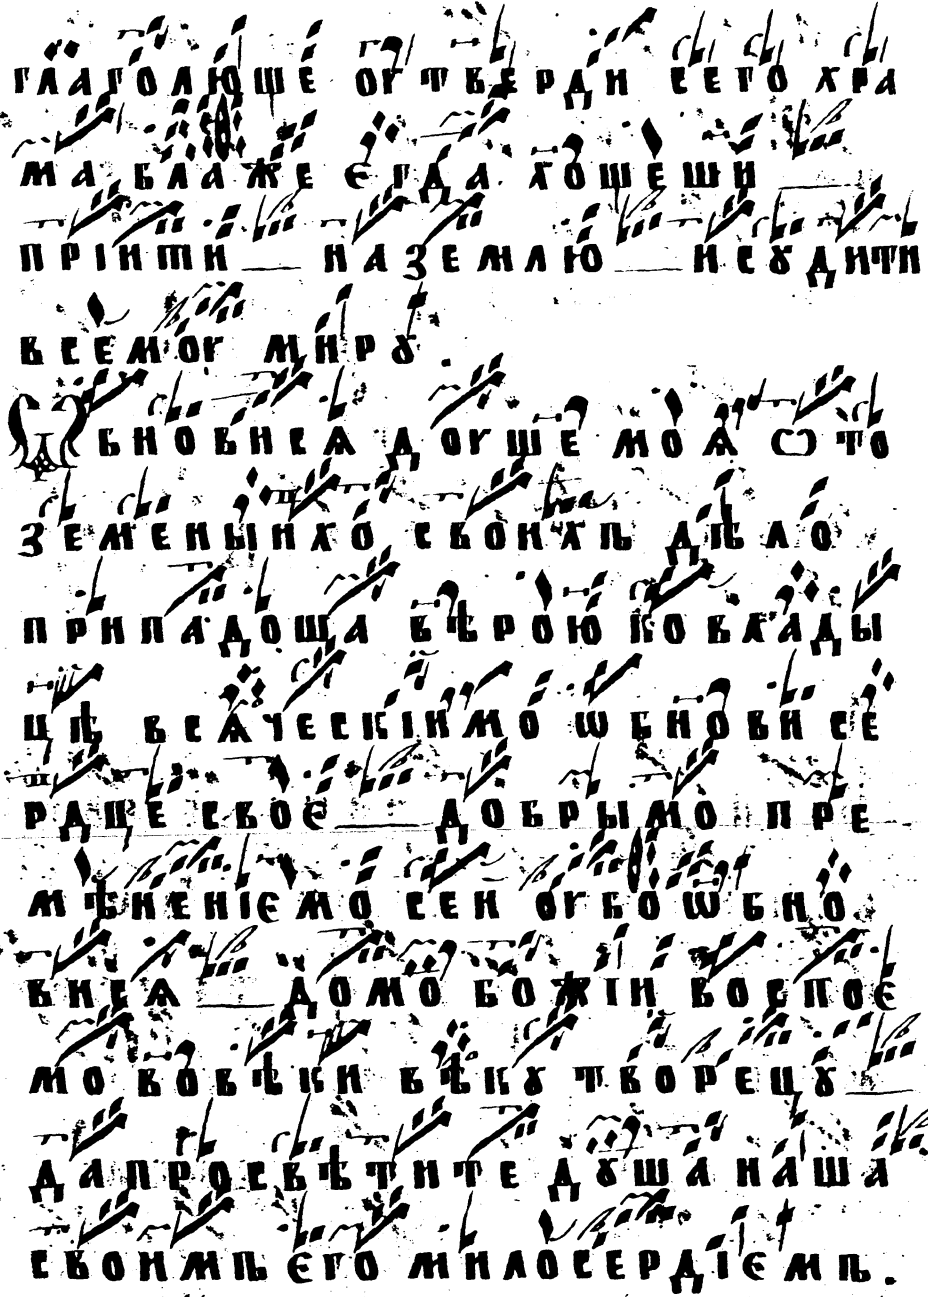 глаголюще оутверди сего хра
ма блаже єгда хощеши
прїити на землю исудити
всемоу миру.
Ѡбновисѧ доуше моѧ ѿ то
земеныихо своихъ дѣло
припадоща вѣрою ко влады
цѣ всѧческїимо ѡбнови се
рдце своє добрымо пре
мѣненїємо сеи оубо ѡбно
висѧ домо божїи воспоє
мо во вѣки вѣку творецу
да просвѣтите душа наша
своимъ єго милосердїємъ.